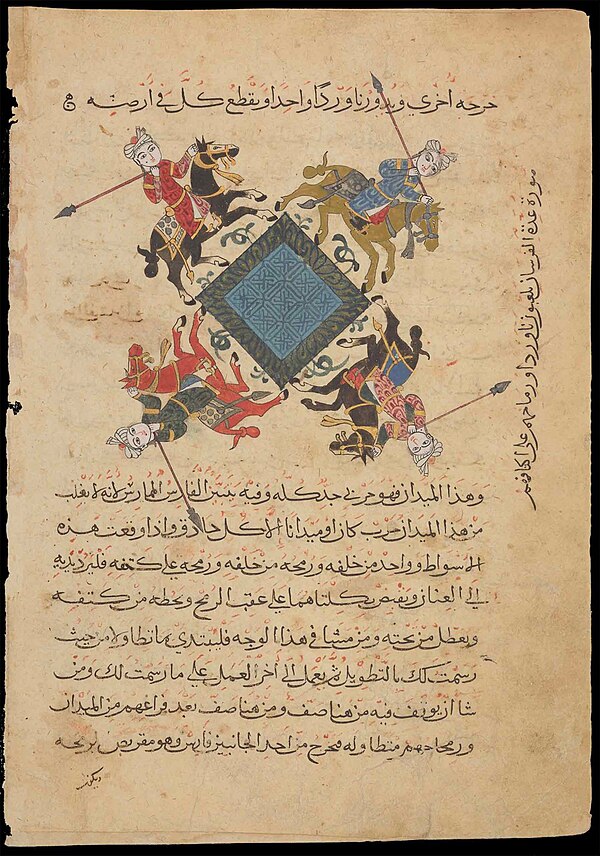 خرجه اخرى ويدورنا وردا واحدا ويقطع كل في ارضه
صورة عدة الفرسان يلعبون ناوردا ورماحهم على اكتافهم
وهذا الميدان فهو حربي جد كله وفيه يتبين الفارس الممارس لانه لا يغلب
من هذا الميدان حرب كان او ميدانا الا كل حاذق واذا وقعت هذه
الاسواط وواحد من خلفه ورمحه من خلفه ورمحه على كتفه فليرد يديه
الى العنان ويقبض بكلتاهما على عقب الرمح ويحطه من كتفه
ويعطل من تحته ومن مشا في هذا الوجه فليبتدي بما تطاولا من حيث
رسمت لك بالتطويل ثم يعمل الى اخر العمل على ما رسمت لك ومن
شا ان يوقف فيه من هنا صف ومن هنا صف بعد فراغهم من الميدان
ورماحهم متطاوله فيخرج من احد الجانبين فارس وهو مقربص لرمحه